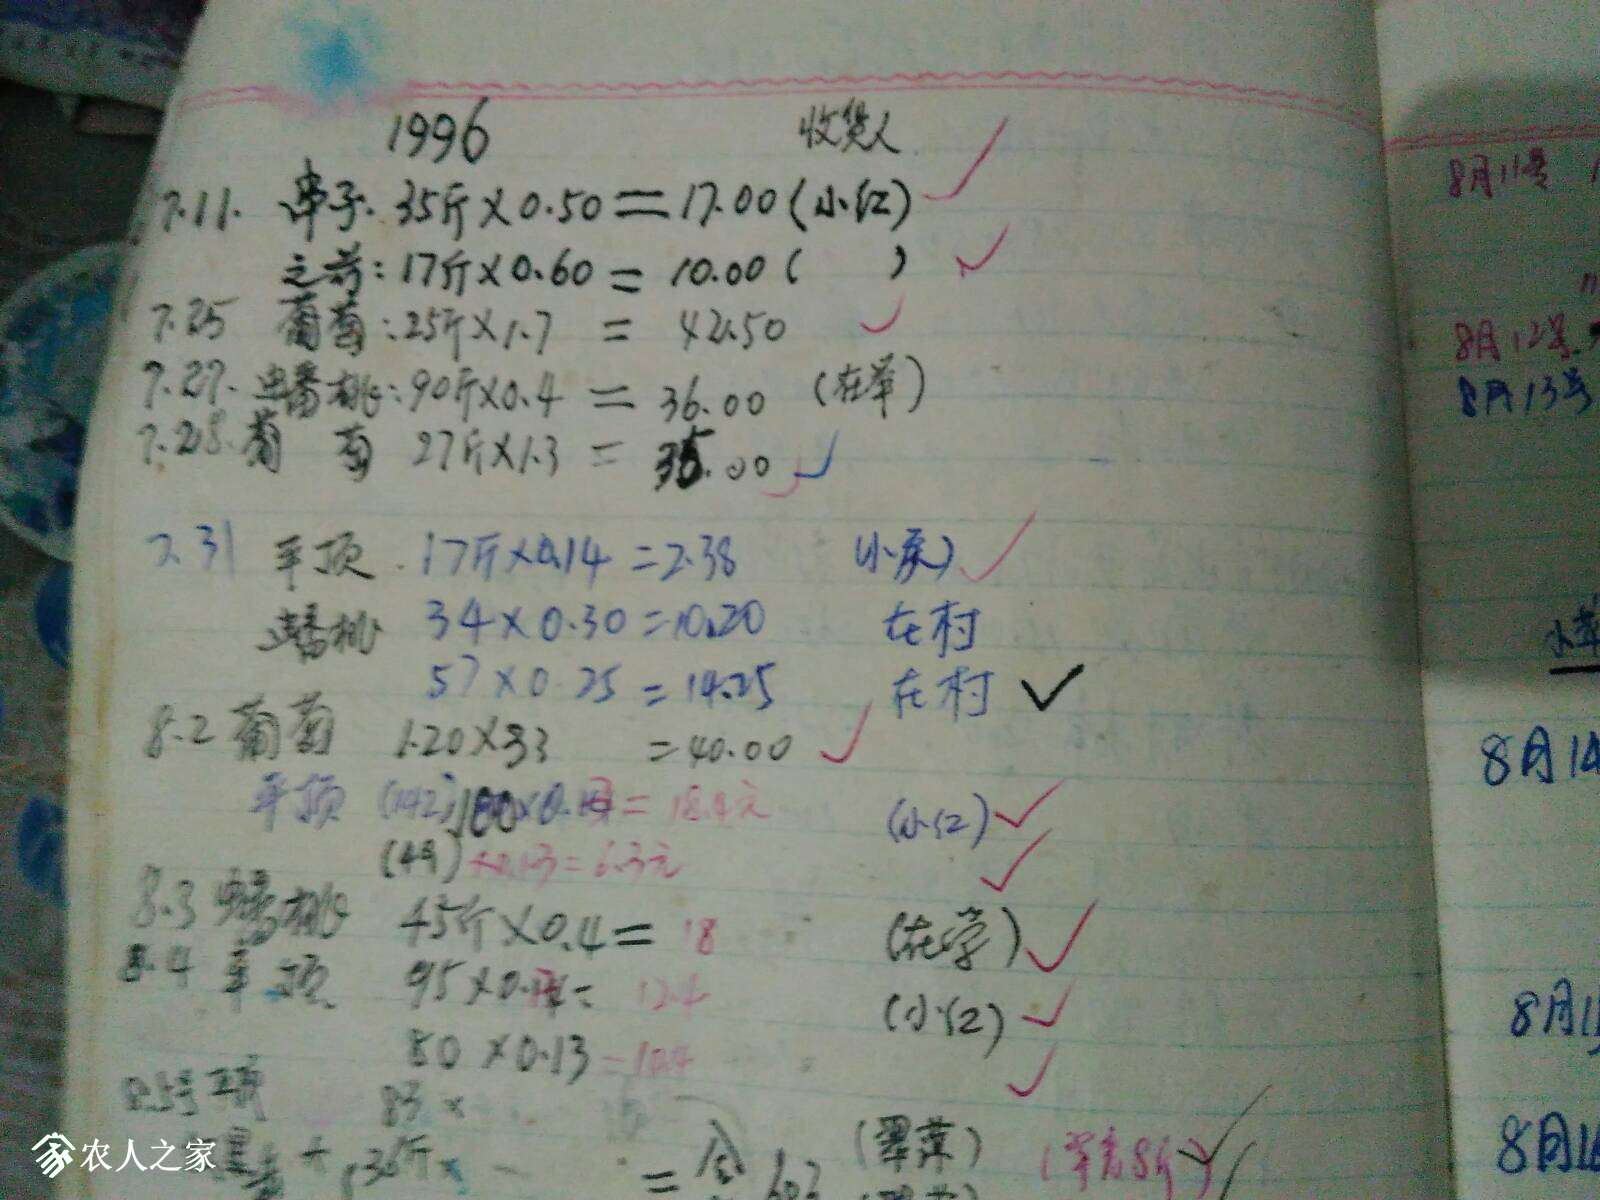 1996 收货人
7.11. 串子. 35斤×0.50=17.00(小红)
之前:17斤×0.60=10.00( )
7.25 葡萄:25斤×1.7 = 42.50
7.27. 蟠桃:90斤×0.4 = 36.00 (在举)
7.28. 葡 萄 27斤×1.3 = 35.00
7.31 平顶 17斤×0.14=2.38
蟠桃 34×0.30=10.20 在村
57×0.25=14.25 在村
8.2 葡萄 1.20×33 =40.00
平顶 (142)100×0. =18.4元 (小红)
(49)×0.13=6.3元
8.3 蟠桃 45斤×0.4= 18 (在学)
8.4 平顶 95×0.1 = 12.4 (小红)
80×0.13=10.4
平顶 83×
36斤×
(翠萍)
8月11号
8月12号
8月13号
8月14
8月1
8月1
农人之家